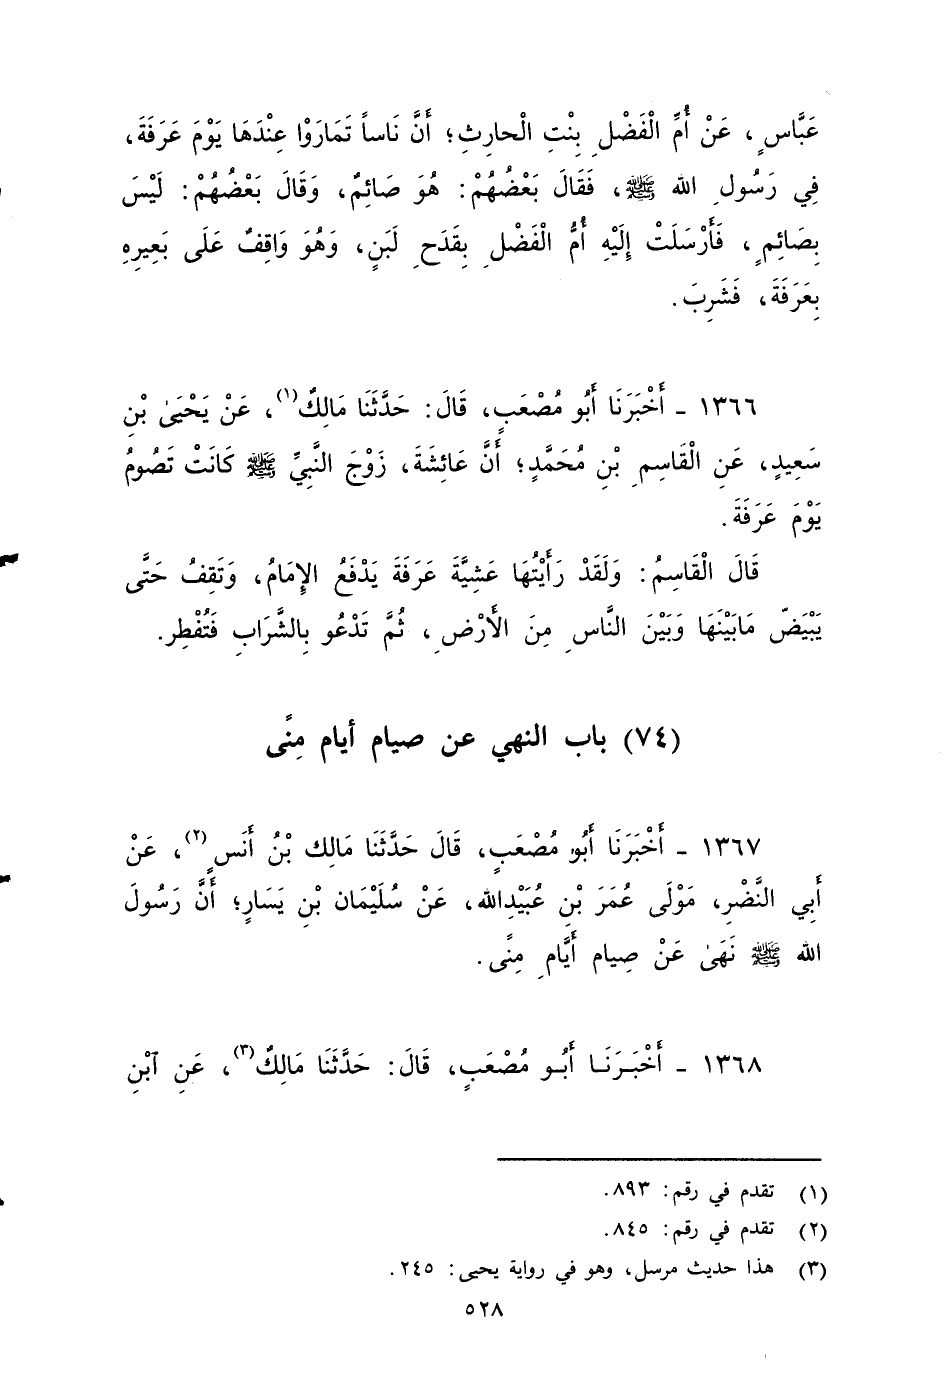 عَبَّاسٍ، عَنْ أُمِّ الْفَضْلِ بِنْتِ الْحارِثِ؛ أَنَّ نَاساً تَمَارَوْا عِنْدَهَا يَوْمَ عَرَفَةَ،
فِي رَسُولِ الله ﷺ، فَقَالَ بَعْضُهُمْ: هُوَ صَائِمٌ، وَقَالَ بَعْضُهُمْ: لَيْسَ
بِصَائِمٍ، فَأَرْسَلَتْ إِلَيْهِ أُمُّ الْفَضْلِ بِقَدَحِ لَبَنٍ، وَهُوَ وَاقِفٌ عَلَى بَعِيرِهِ
بِعَرَفَةَ، فَشَرِبَ.
١٣٦٦ ـ أَخْبَرَنَا أَبُو مُصْعَبٍ، قَالَ: حَدَّثَنَا مَالِكٌ(١)، عَنْ يَحْيَىٰ بْنِ
سَعِيدٍ، عَنِ الْقَاسِمِ بْنِ مُحَمَّدٍ؛ أَنَّ عَائِشَةَ، زَوْجَ النَّبِيِّ ﷺ كَانَتْ تَصُومُ
يَوْمَ عَرَفَةَ.
قَالَ الْقَاسِمُ: وَلَقَدْ رَأَيْتُهَا عَشِيَّةَ عَرَفَةَ يَدْفَعُ الإِمَامُ، وَتَقِفُ حَتَّى
يَبْيَضّ مَابَيْنَهَا وَبَيْنَ النَّاسِ مِنَ الأَرْضِ، ثُمَّ تَدْعُو بِالشَّرَابِ فَتُفْطِر.
(٧٤) باب النهي عن صيام أيام مِنًى
١٣٦٧ ـ أَخْبَرَنَا أَبُو مُصْعَبٍ، قَالَ حَدَّثَنَا مَالِك بْنُ أَنَسٍ(٢)، عَنْ
أَبي النَّضْرِ، مَوْلَى عُمَرَ بْنِ عُبَيْدِالله، عَنْ سُلَيْمَان بْنِ يَسَارٍ؛ أَنَّ رَسُولَ
الله ﷺ نَهَىٰ عَنْ صِيام أَيَّامِ مِنًى.
١٣٦٨ ـ أَخْبَرَنَا أَبُو مُصْعَبٍ، قَالَ: حَدَّثَنَا مَالِكٌ(٣)، عَنِ ٱبْنِ
(١) تقدم في رقم: ٨٩٣.
(٢) تقدم في رقم: ٨٤٥.
(٣) هذا حديث مرسل، وهو في رواية يحيى: ٢٤٥.
٥٢٨